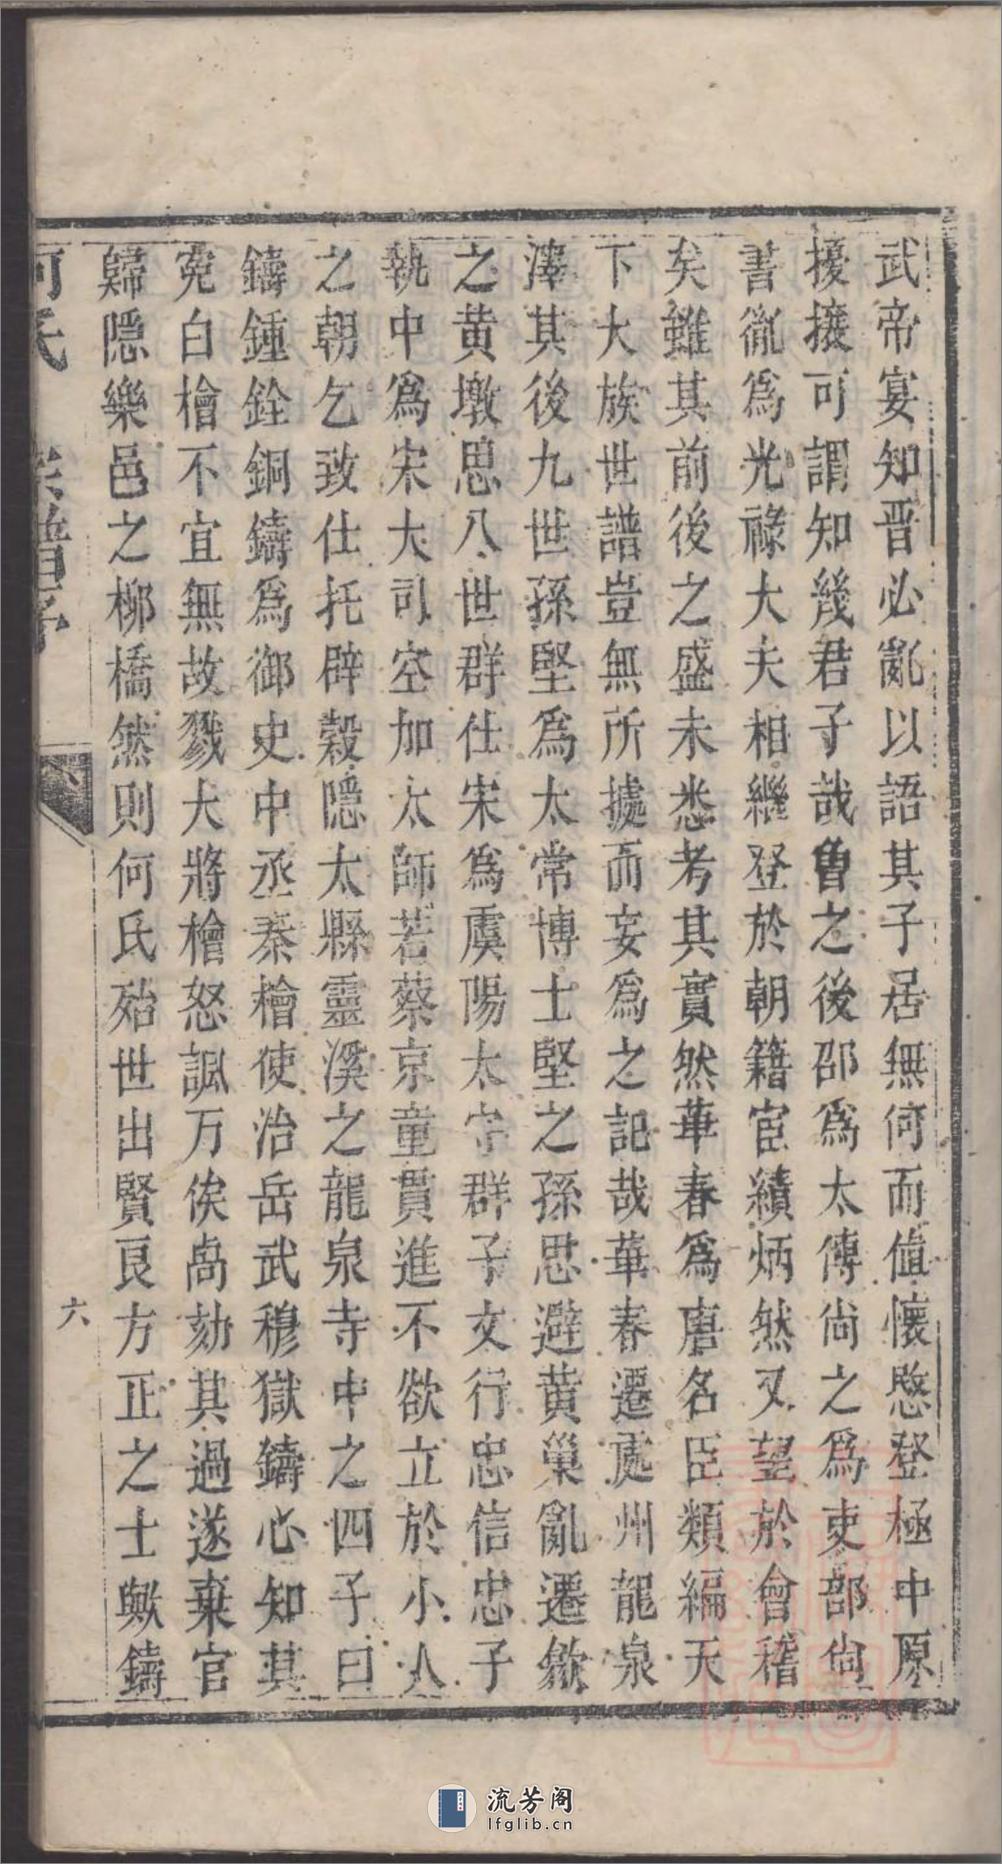 武帝宴知晋必亂以語其子居無何而值懷愍登極中原
擾攘可謂知幾君子哉曾之後邵爲太傅尙之爲吏部尙
書胤爲光祿大夫相繼登於朝籍宦績炳然又望於會稽
矣雖其前後之盛未悉考其實然華春爲唐名臣類編天
下大族世譜豈無所據而妄爲之記哉華春遷處州龍泉
澤其後九世孫堅爲太常博士堅之孫思避黃巢亂遷歙
之黃墩思八世群仕宋爲虞陽太守群子文行忠信忠子
執中爲宋大司空加太師若蔡京童貫進不欲立於小人
之朝乞致仕托辟穀隱太縣靈溪之龍泉寺中之四子曰
鑄鍾銓銅鑄爲御史中丞秦檜使治岳武穆獄鑄心知其
冤白檜不宜無故戮大將檜怒諷万俟卨劾其過遂棄官
歸隱樂邑之柳橋然則何氏殆世出賢良方正之士歟鑄
何氏 宗譜序
六
流芳阁
lfglib.cn